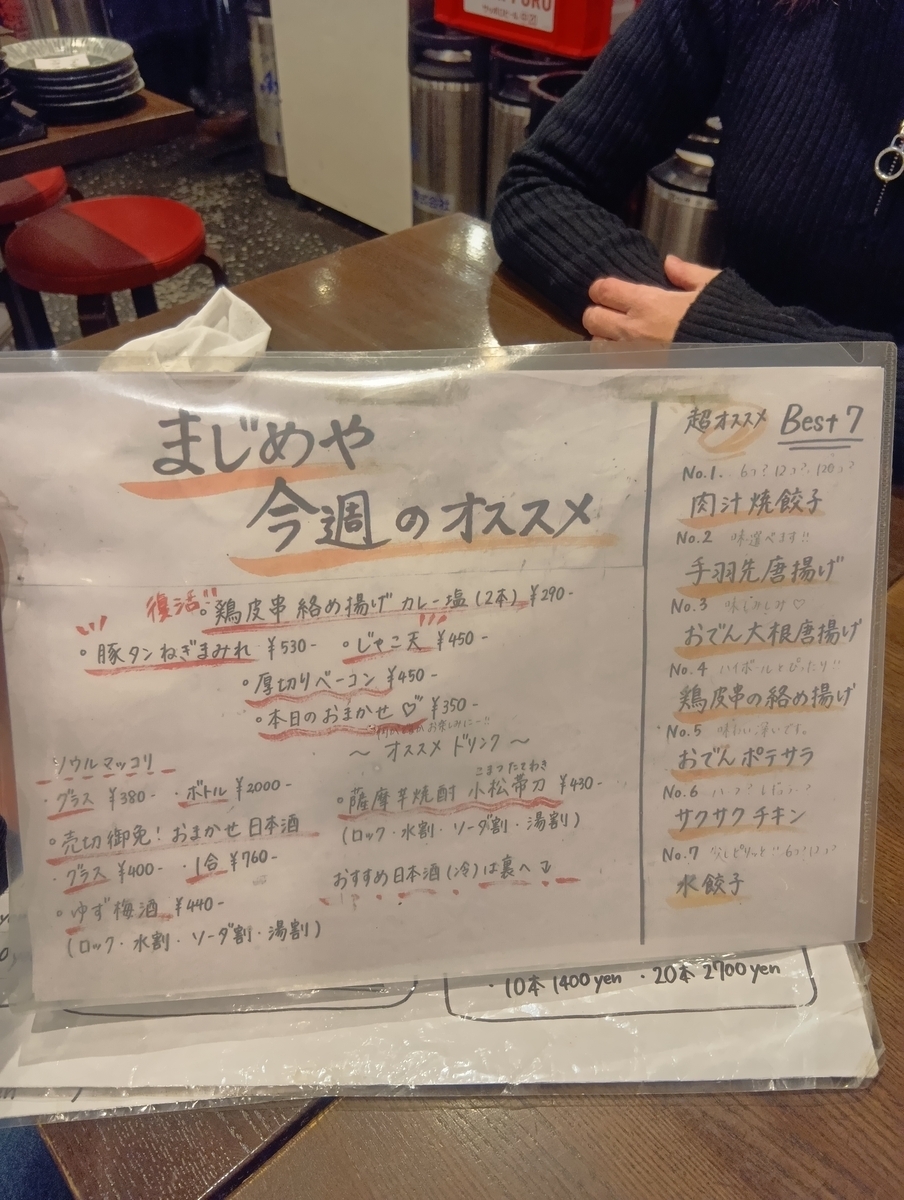 株式会社
まじめや
今週のオススメ
復活!!
・鶏皮串絡め揚げカレー塩(2本) ¥290-
・豚タンねぎまみれ ¥530-
・じゃこ天 ¥450-
・厚切りベーコン ¥450-
・本日のおまかせ♡ ¥350-
お楽しみに〜!!
〜 オススメ ドリンク 〜
ソウルマッコリ
・グラス ¥380-
・ボトル ¥2000-
・売切御免! おまかせ日本酒
・グラス ¥400-
・1合 ¥760-
・ゆず梅酒 ¥440-
(ロック・水割・ソーダ割・湯割)
こまつたてわき
・薩摩芋焼酎 小松帯刀 ¥430-
(ロック・水割・ソーダ割・湯割)
おすすめ日本酒(冷)は裏へ
超オススメ Best 7
No.1. 6つ?12つ?、120つ?
肉汁焼餃子
No.2 味選べます!!
手羽先唐揚げ
No.3 味じみ♡
おでん大根唐揚げ
No.4 ハイボールとぴったり!!
鶏皮串の絡め揚げ
No.5 味わい深いです。
おでんポテサラ
No.6
サクサクチキン
No.7 少しピリッと
水餃子
・10本 1400 yen ・20本 2700 yen